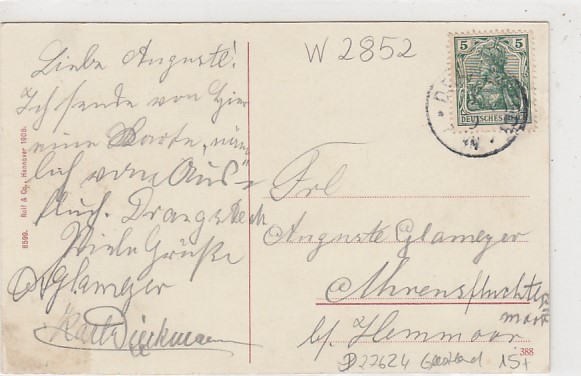 Liebe Auguste!
Ich sende von hier
eine Karte, näm
lich vom Aus-
flug. Drangstedt
Viele Grüße
A Glameyer
Karl Dieckmann
8599. Rolf & Co., Hannover 1908.
W 2852
5 5
DEUTSCHES REICH
Frl
Auguste Glameyer
Ahrensflucht
b/. Hemmoor
388
27624 15+